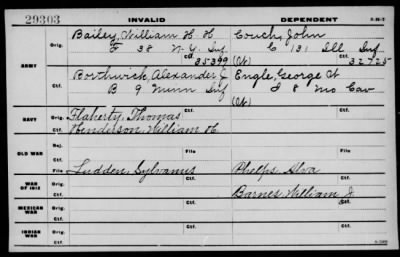 29303 INVALID DEPENDENT
Orig. Bailey, William H. H. Couch, John
F 38 N.Y. Inf C 131 Ill Inf
ARMY Ctf. 35399 32725
(Ct) (Ct)
Orig. Borthwick, Alexander J. Engle, George W
B 9 Minn Inf I 8 Mo Cav
Ctf. (Ct)
NAVY Orig. Flaherty, Thomas
Ctf. Henderson, William H.
OLD WAR Rej.
Ctf. File File
WAR OF 1812 Orig. Ludden, Sylvanus Phelps, Alva
Ctf. Barnes, William J.
MEXICAN WAR Orig.
Ctf. Ctf.
INDIAN WAR Orig.
Ctf. Ctf.